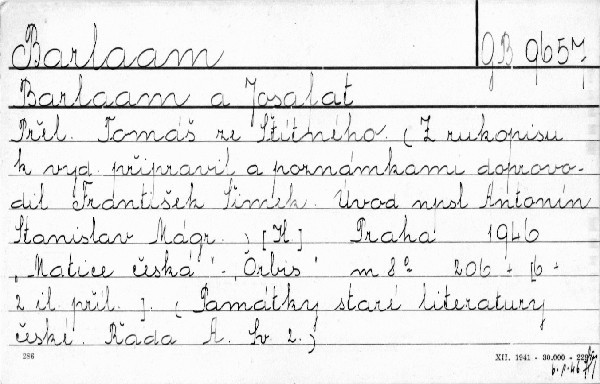 Barlaam
GB 9657
Barlaam a Josafat
Přel. Tomáš ze Štítného. (Z rukopisu
k vyd. připravil a poznámkami doprovo-
dil František Šimek. Úvod npsl Antonín
Stanislav Mágr.) [H] Praha 1946
"Matice česká" - "Orbis" m 8° 206 + [6 +
2 il. příl.]. (Památky staré literatury
české. Řada A. Sv. 2.)
286
XII. 1941 - 30.000 -